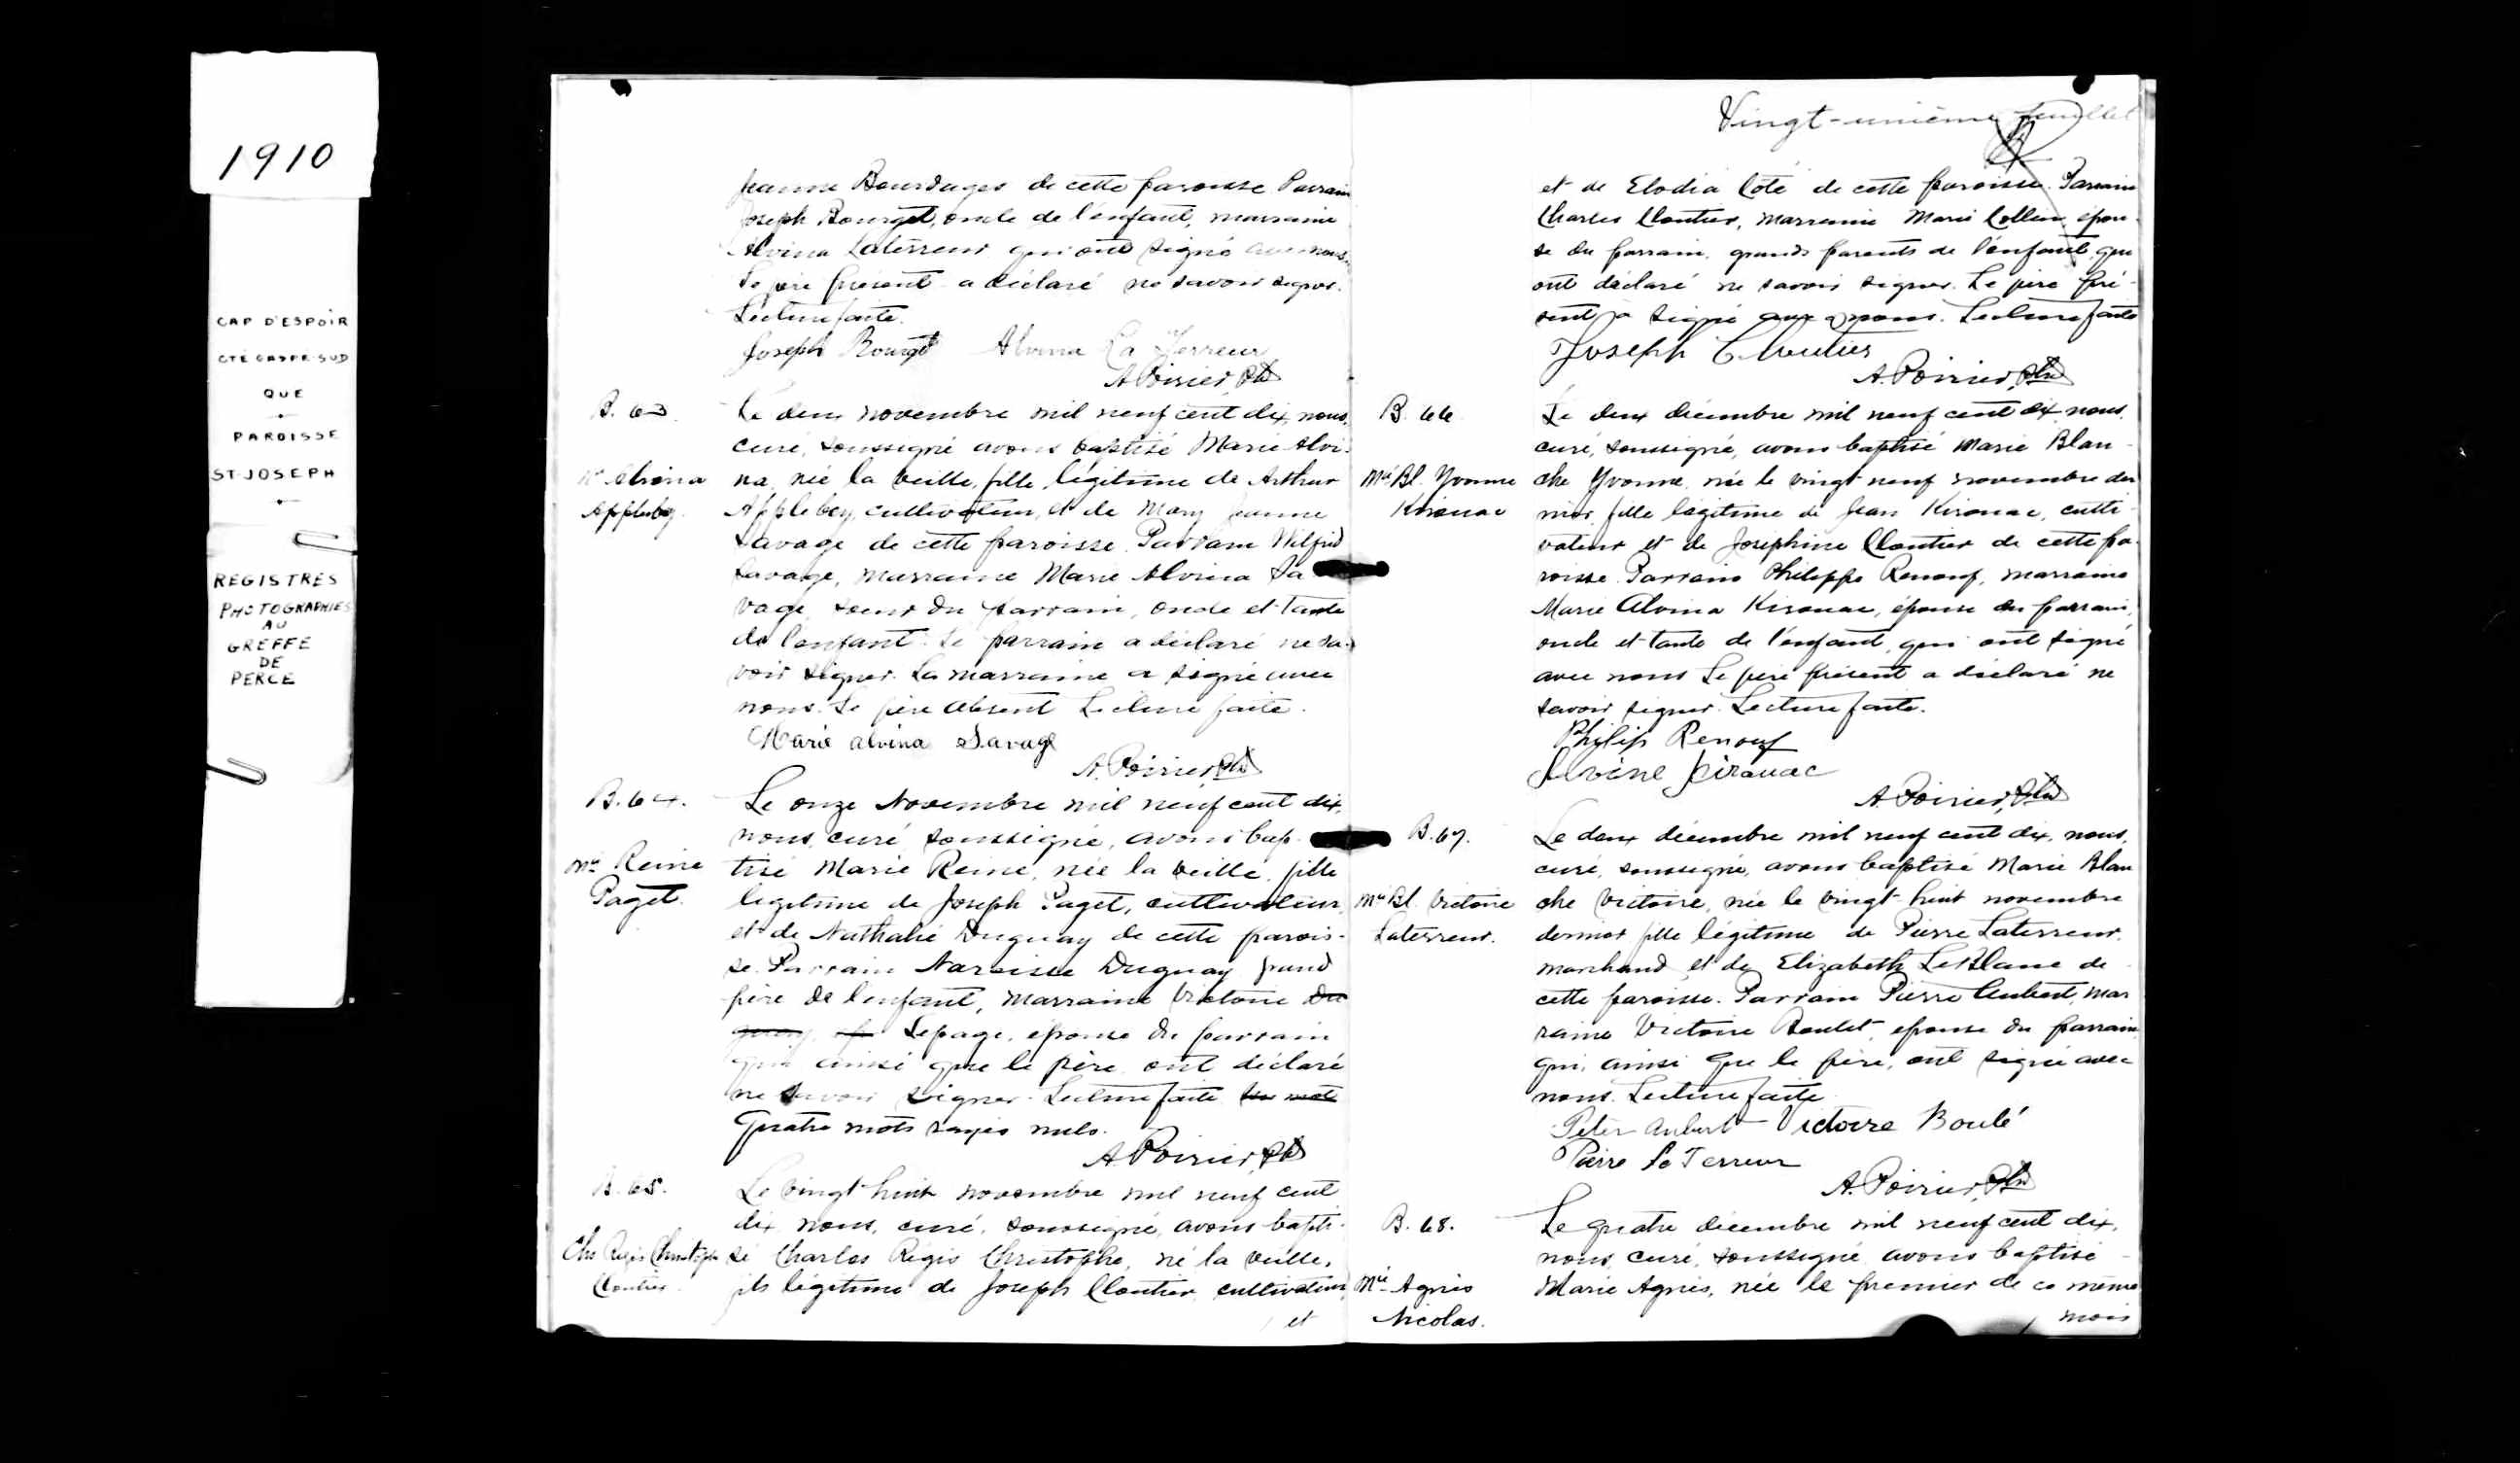 1910
CAP D'ESPOIR
CTÉ GASPÉ-SUD
QUE
PAROISSE
ST-JOSEPH
REGISTRES
PHOTOGRAPHIES
AU
GREFFE
DE
PERCE
Jeanne Bourdages de cette paroisse Parrain
Joseph Bourget, oncle de l'enfant, marraine
Alvina Laterreur qui ont signé avec nous.
Le père présent a déclaré ne savoir signer.
Lecture faite.
Joseph Bourget Alvina La Terreur
A. Poirier Ptre
B. 63.
Mie Alvina
Appleby.
Le deux novembre mil neuf cent dix, nous,
curé, soussigné avons baptisé Marie Alvi-
na, née la veille, fille légitime de Arthur
Applebey, cultivateur, et de Mary Jeanne
Savage de cette paroisse. Parrain Wilfrid
Savage, marraine Marie Alvina Sa
vage, soeur du parrain, oncle et tante
de l'enfant. Le parrain a déclaré ne sa-
voir signer. La marraine a signé avec
nous. Le père absent Lecture faite.
Marie alvina Savage
A. Poirier Ptre
B. 64.
Mie Reine
Paget.
Le onze Novembre mil neuf cent dix,
nous, curé soussigné, avons bap-
tisé Marie Reine, née la veille, fille
legitime de Joseph Paget, cultivateur,
et de Nathalie Duguay de cette parois-
se. Parrain Narcisse Duguay grand
père de l'enfant, marraine Victoire Du
guay, Lepage, épouse du parrain
qui ainsi que le père ont déclaré
ne savoir signer. Lecture faite
Quatre mots rayés nuls.
A. Poirier, Ptre
B. 65.
Chs Regis Christophe
Cloutier.
Le vingt huit novembre mil neuf cent
dix nous, curé, soussigné, avons bapti-
sé Charles Regis Christophe, né la veille,
fils légitime de Joseph Cloutier, cultivateur,
et
Vingt-unième feuillet
et de Elodia Coté de cette paroisse. Parrain
Charles Cloutier, marraine Marie Collin, épou-
se du parrain, grands parents de l'enfant, qui
ont déclaré ne savoir signer. Le père pré-
sent, a signé avec nous. Lecture faite
Joseph Cloutier
A. Poirier, Ptre
B. 66.
Mie Bl. Yvonne
Kirouac
Le deux décembre mil neuf cent dix, nous,
curé, soussigné, avons baptisé Marie Blan-
che Yvonne, née le vingt neuf novembre der
nier, fille légitime de Jean Kirouac, culti-
vateur et de Josephine Cloutier de cette pa-
roisse. Parrain Philippe Renouf, marraine
Marie Alvina Kirouac, épouse du parrain,
oncle et tante de l'enfant, qui ont signé
avec nous Le père présent a déclaré ne
savoir signer. Lecture faite.
Philip Renouf
Kirouac
A. Poirier, Ptre
B. 67.
Mie Bl. Victoire
Laterreur.
Le deux décembre mil neuf cent dix, nous,
curé, soussigné, avons baptisé Marie Blan
che Victoire, née le vingt huit novembre
dernier fille légitime de Pierre Laterreur,
marchand et de Elizabeth LeBlanc de
cette paroisse. Parrain Pierre Aubert, mar
raine Victoire Boulet, epouse du parrain,
qui, ainsi que le père, ont signé avec
nous. Lecture faite
Peter Aubert Victoire Boulé
Pierre La Terreur
A. Poirier, Ptre
B. 68.
Mie Agnès
Nicolas.
Le quatre décembre mil neuf cent dix,
nous, curé, soussigné avons baptisé
Marie Agnès, née le premier de ce même
mois